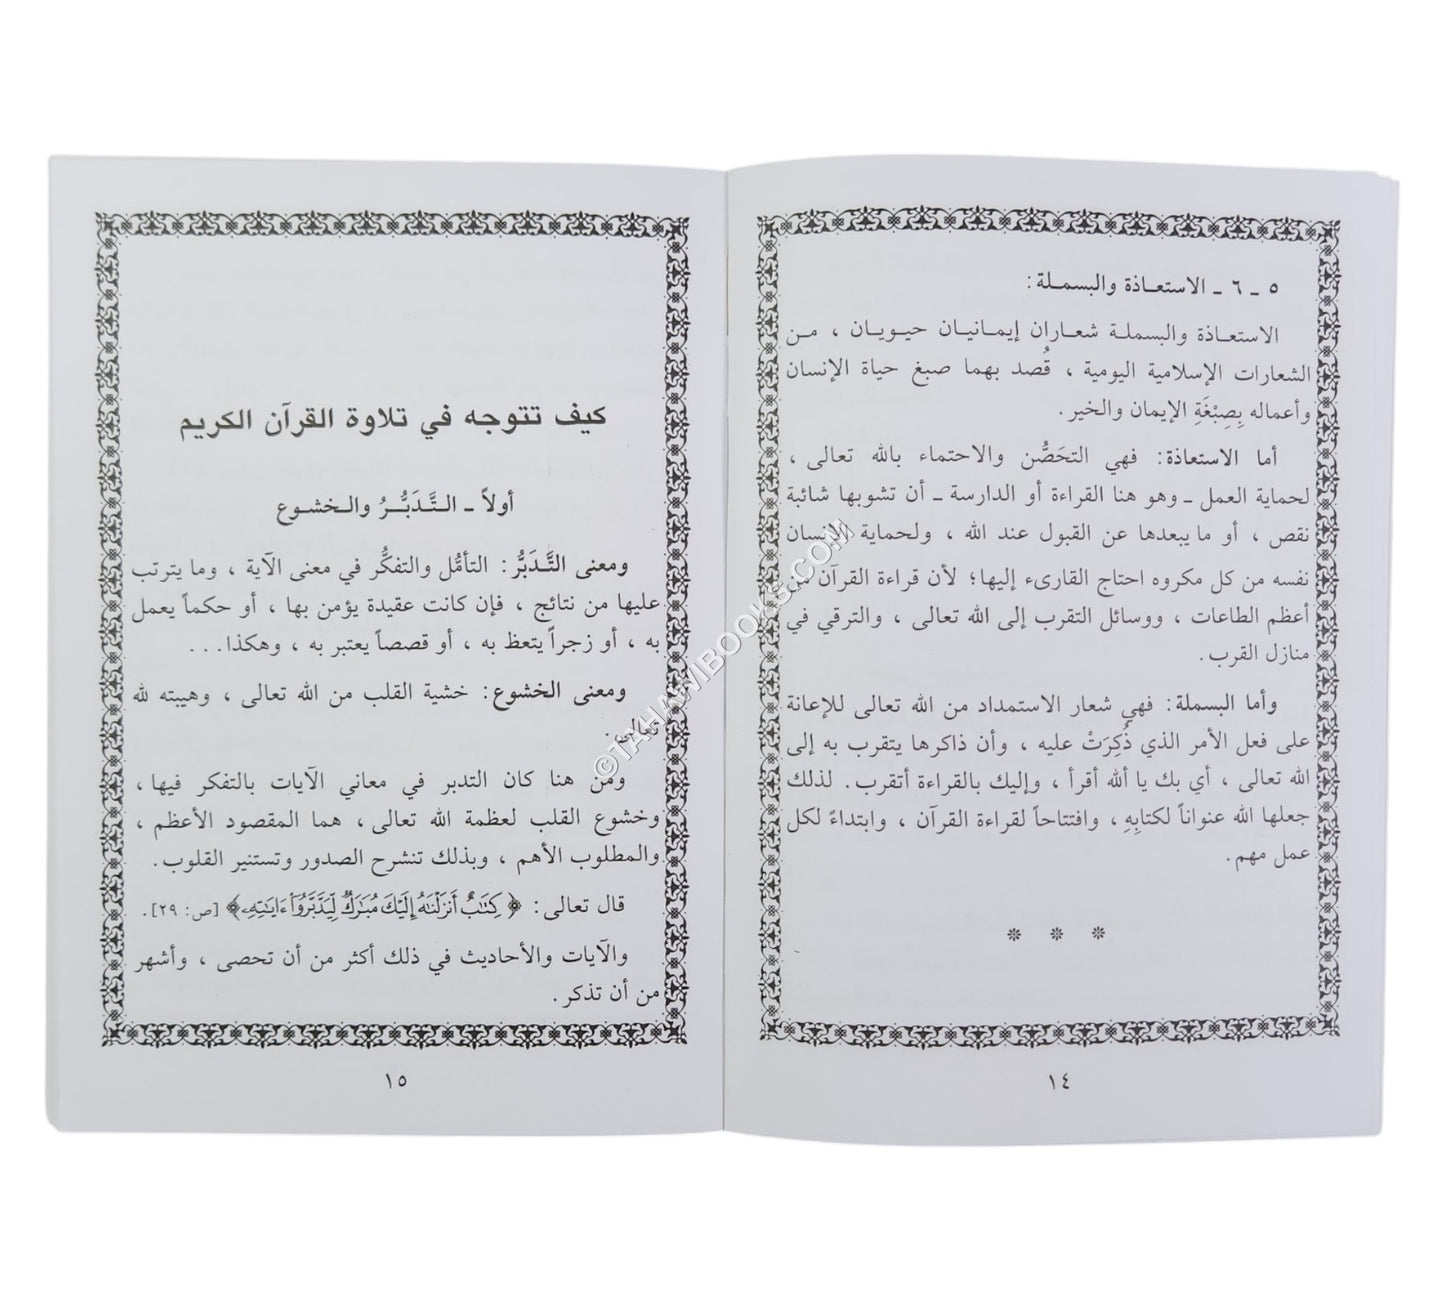 ٥ ـ ٦ ـ الاستعـاذة والبسمـلة:
الاستعـاذة والبسملـة شعـاران إيمـانيـان حيـويـان ، مـن
الشعارات الإسلامية اليومية ، قُصد بهما صبغ حياة الإنسان
وأعماله بِصِبْغَةِ الإيمان والخير.
أما الاستعاذة: فهي التحَصُّن والاحتماء بالله تعالى ،
لحماية العمل ـ وهو هنا القراءة أو الدارسة ـ أن تشوبها شائبة
نقص ، أو ما يبعدها عن القبول عند الله ، ولحماية الإنسان
نفسه من كل مكروه احتاج القارىء إليها؛ لأن قراءة القرآن من
أعظم الطاعات ، ووسائل التقرب إلى الله تعالى ، والترقي في
منازل القرب.
وأما البسملة: فهي شعار الاستمداد من الله تعالى للإعانة
على فعل الأمر الذي ذُكِرَتْ عليه ، وأن ذاكرها يتقرب به إلى
الله تعالى ، أي بك يا ألله أقرأ ، وإليك بالقراءة أتقرب. لذلك
جعلها الله عنواناً لكتابِهِ ، وافتتاحاً لقراءة القرآن ، وابتداءً لكل
عمل مهم.
* * *
١٤
كيف تتوجه في تلاوة القرآن الكريم
أولاً ـ التَّـدَبُّـرُ والـخشـوع
ومعنى التَّـدَبُّر: التأمُّل والتفكُّر في معنى الآية ، وما يترتب
عليها من نتائج ، فإن كانت عقيدة يؤمن بها ، أو حكماً يعمل
به ، أو زجراً يتعظ به ، أو قصصاً يعتبر به ، وهكذا...
ومعنى الخشوع: خشية القلب من الله تعالى ، وهيبته لله
تعالى.
ومن هنا كان التدبر في معاني الآيات بالتفكر فيها ،
وخشوع القلب لعظمة الله تعالى ، هما المقصود الأعظم ،
والمطلوب الأهم ، وبذلك تنشرح الصدور وتستنير القلوب.
قال تعالى: ﴿ كِتَٰبٌ أَنزَلۡنَٰهُ إِلَيۡكَ مُبَٰرَكٞ لِّيَدَّبَّرُوٓاْ ءَايَٰتِهِۦ ﴾ [ص: ٢٩].
والآيات والأحاديث في ذلك أكثر من أن تحصى ، وأشهر
من أن تذكر.
١٥
©TAHAWIBOOKS.COM